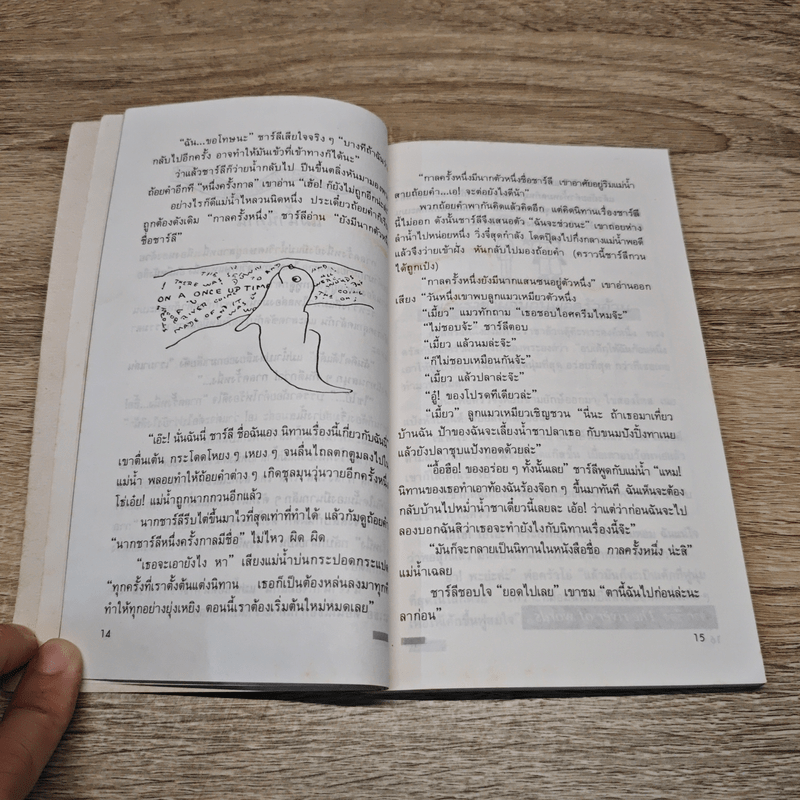 “ฉัน...ขอโทษนะ” ชาร์ลีเสียใจจริง ๆ “บางทีถ้าฉัน
กลับไปอีกครั้ง อาจทำให้มันเข้าที่เข้าทางก็ได้นะ”
ว่าแล้วชาร์ลีก็ว่ายน้ำกลับไป ปีนขึ้นตลิ่งหันมามอง
ถ้อยคำอีกที “หนึ่งครั้งกาล” เขาอ่าน “เฮ้อ! ก็ยังไม่ถูกอีก
อย่างไรก็ดีแม่น้ำไหลวนนิดหนึ่ง ประเดี๋ยวถ้อยคำก็
ถูกต้องดังเดิม “กาลครั้งหนึ่ง” ชาร์ลีอ่าน “ยังมีนากตัว
ชื่อชาร์ลี”
ON A ONCE UP TIME
“เอ๊ะ! นั่นฉันนี่ ชาร์ลี ชื่อฉันเอง นิทานเรื่องนี้เกี่ยวกับฉัน
เขาตื่นเต้น กระโดดโหยง ๆ เหยง ๆ จนลื่นไถลตกตูมลงไปใน
แม่น้ำ พลอยทำให้ถ้อยคำต่าง ๆ เกิดชุลมุนวุ่นวายอีกครั้ง
โธ่เอ๋ย! แม่น้ำถูกนากกวนอีกแล้ว
นากชาร์ลีรีบไต่ขึ้นมาไวที่สุดเท่าที่ทำได้ แล้วก้มดูถ้อยคำ
“นากชาร์ลีหนึ่งครั้งกาลมีชื่อ” ไม่ไหว ผิด ผิด
“เธอจะเอายังไง หา” เสียงแม่น้ำบ่นกระปอดกระแปด
“ทุกครั้งที่เราตั้งต้นแต่งนิทาน เธอก็เป็นต้องหล่นลงมาทุกที
ทำให้ทุกอย่างยุ่งเหยิง ตอนนี้เราต้องเริ่มต้นใหม่หมดเลย”
14
“กาลครั้งหนึ่งมีนากตัวหนึ่งชื่อชาร์ลี เขาอาศัยอยู่ริมแม่น้ำ
สายถ้อยคำ...เอ! จะต่อยังไงดีน้า”
พวกถ้อยคำพากันคิดแล้วคิดอีก แต่คิดนิทานเรื่องชาร์ลี
นี้ไม่ออก ดังนั้นชาร์ลีจึงเสนอตัว “ฉันจะช่วยนะ” เขาถอยห่าง
ลำน้ำไปหน่อยหนึ่ง วิ่งจี๋สุดกำลัง โดดปุ๊ลงไปกึ่งกลางแม่น้ำพอดี
แล้วจึงว่ายเข้าฝั่ง หันกลับไปมองถ้อยคำ (คราวนี้ชาร์ลีกวน
ได้ถูกเป๋ง)
“กาลครั้งหนึ่งยังมีนากแสนซนอยู่ตัวหนึ่ง” เขาอ่านออก
เสียง “วันหนึ่งเขาพบลูกแมวเหมียวตัวหนึ่ง
“เมี้ยว” แมวทักถาม “เธอชอบไอศครีมไหมจ๊ะ”
“ไม่ชอบจ้ะ” ชาร์ลีตอบ
“เมี้ยว แล้วนมล่ะจ๊ะ”
“ก็ไม่ชอบเหมือนกันจ้ะ”
“เมี้ยว แล้วปลาล่ะจ๊ะ”
“อู้! ของโปรดทีเดียวล่ะ”
“เมี้ยว” ลูกแมวเหมียวเชิญชวน “นี่นะ ถ้าเธอมาเที่ยว
บ้านฉัน ป้าของฉันจะเลี้ยงน้ำชาปลาเธอ กับขนมปังปิ้งทาเนย
แล้วยังปลาชุบแป้งทอดด้วยล่ะ”
“อื้อฮือ! ของอร่อย ๆ ทั้งนั้นเลย” ชาร์ลีพูดกับแม่น้ำ “แหม!
นิทานของเธอทำเอาท้องฉันร้องจ๊อก ๆ ขึ้นมาทันที ฉันเห็นจะต้อง
กลับบ้านไปหม่ำน้ำชาเดี๋ยวนี้เลยละ เอ้อ! ว่าแต่ว่าก่อนฉันจะไป
ลองบอกฉันสิว่าเธอจะทำยังไงกับนิทานเรื่องนี้จ๊ะ”
“มันก็จะกลายเป็นนิทานในหนังสือชื่อ กาลครั้งหนึ่ง น่ะสิ”
แม่น้ำเฉลย
ชาร์ลีชอบใจ “ยอดไปเลย” เขาชม “ตานี้ฉันไปก่อนล่ะนะ
ลาก่อน”
15